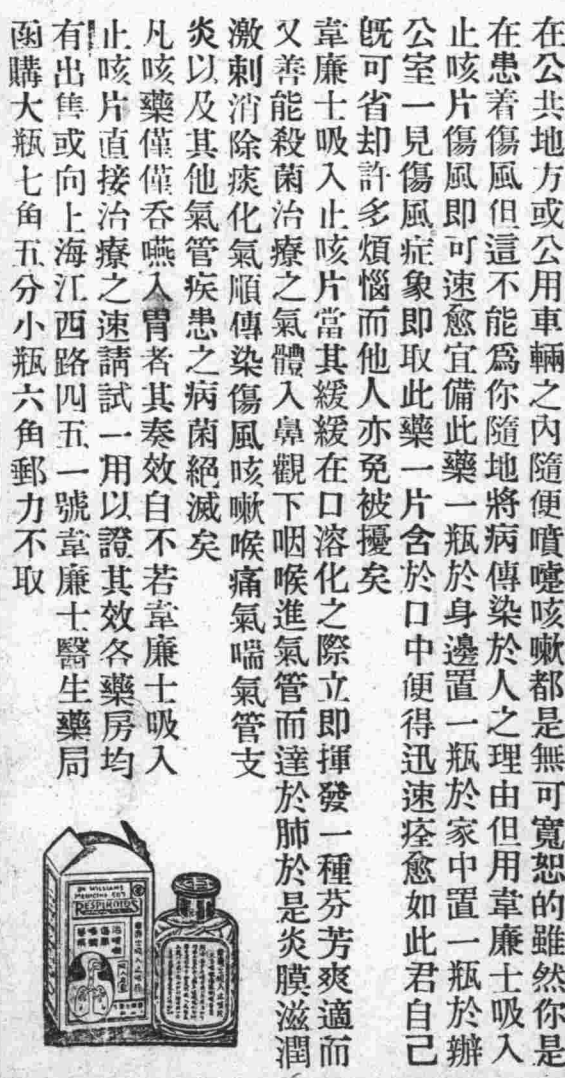 在公共地方或公用車輛之內隨便噴嚏咳嗽都是無可寬恕的雖然你是
在患着傷風但這不能爲你隨地將病傳染於人之理由但用韋廉士吸入
止咳片傷風即可速愈宜備此藥一瓶於身邊置一瓶於家中置一瓶於辦
公室一見傷風症象即取此藥一片含於口中便得迅速痊愈如此君自己
旣可省却許多煩惱而他人亦免被擾矣
韋廉士吸入止咳片當其緩緩在口溶化之際立即揮發一種芬芳爽適而
又善能殺菌治療之氣體入鼻觀下咽喉進氣管而達於肺於是炎膜滋潤
激刺消除痰化氣順傳染傷風咳嗽喉痛氣喘氣管支
炎以及其他氣管疾患之病菌絕滅矣
凡咳藥僅僅吞嚥入胃者其奏效自不若韋廉士吸入
止咳片直接治療之速請試一用以證其效各藥房均
有出售或向上海江西路四五一號韋廉士醫生藥局
函購大瓶七角五分小瓶六角郵力不取
DR WILLIAMS
MEDICINE CO'S
RESPIROIDS